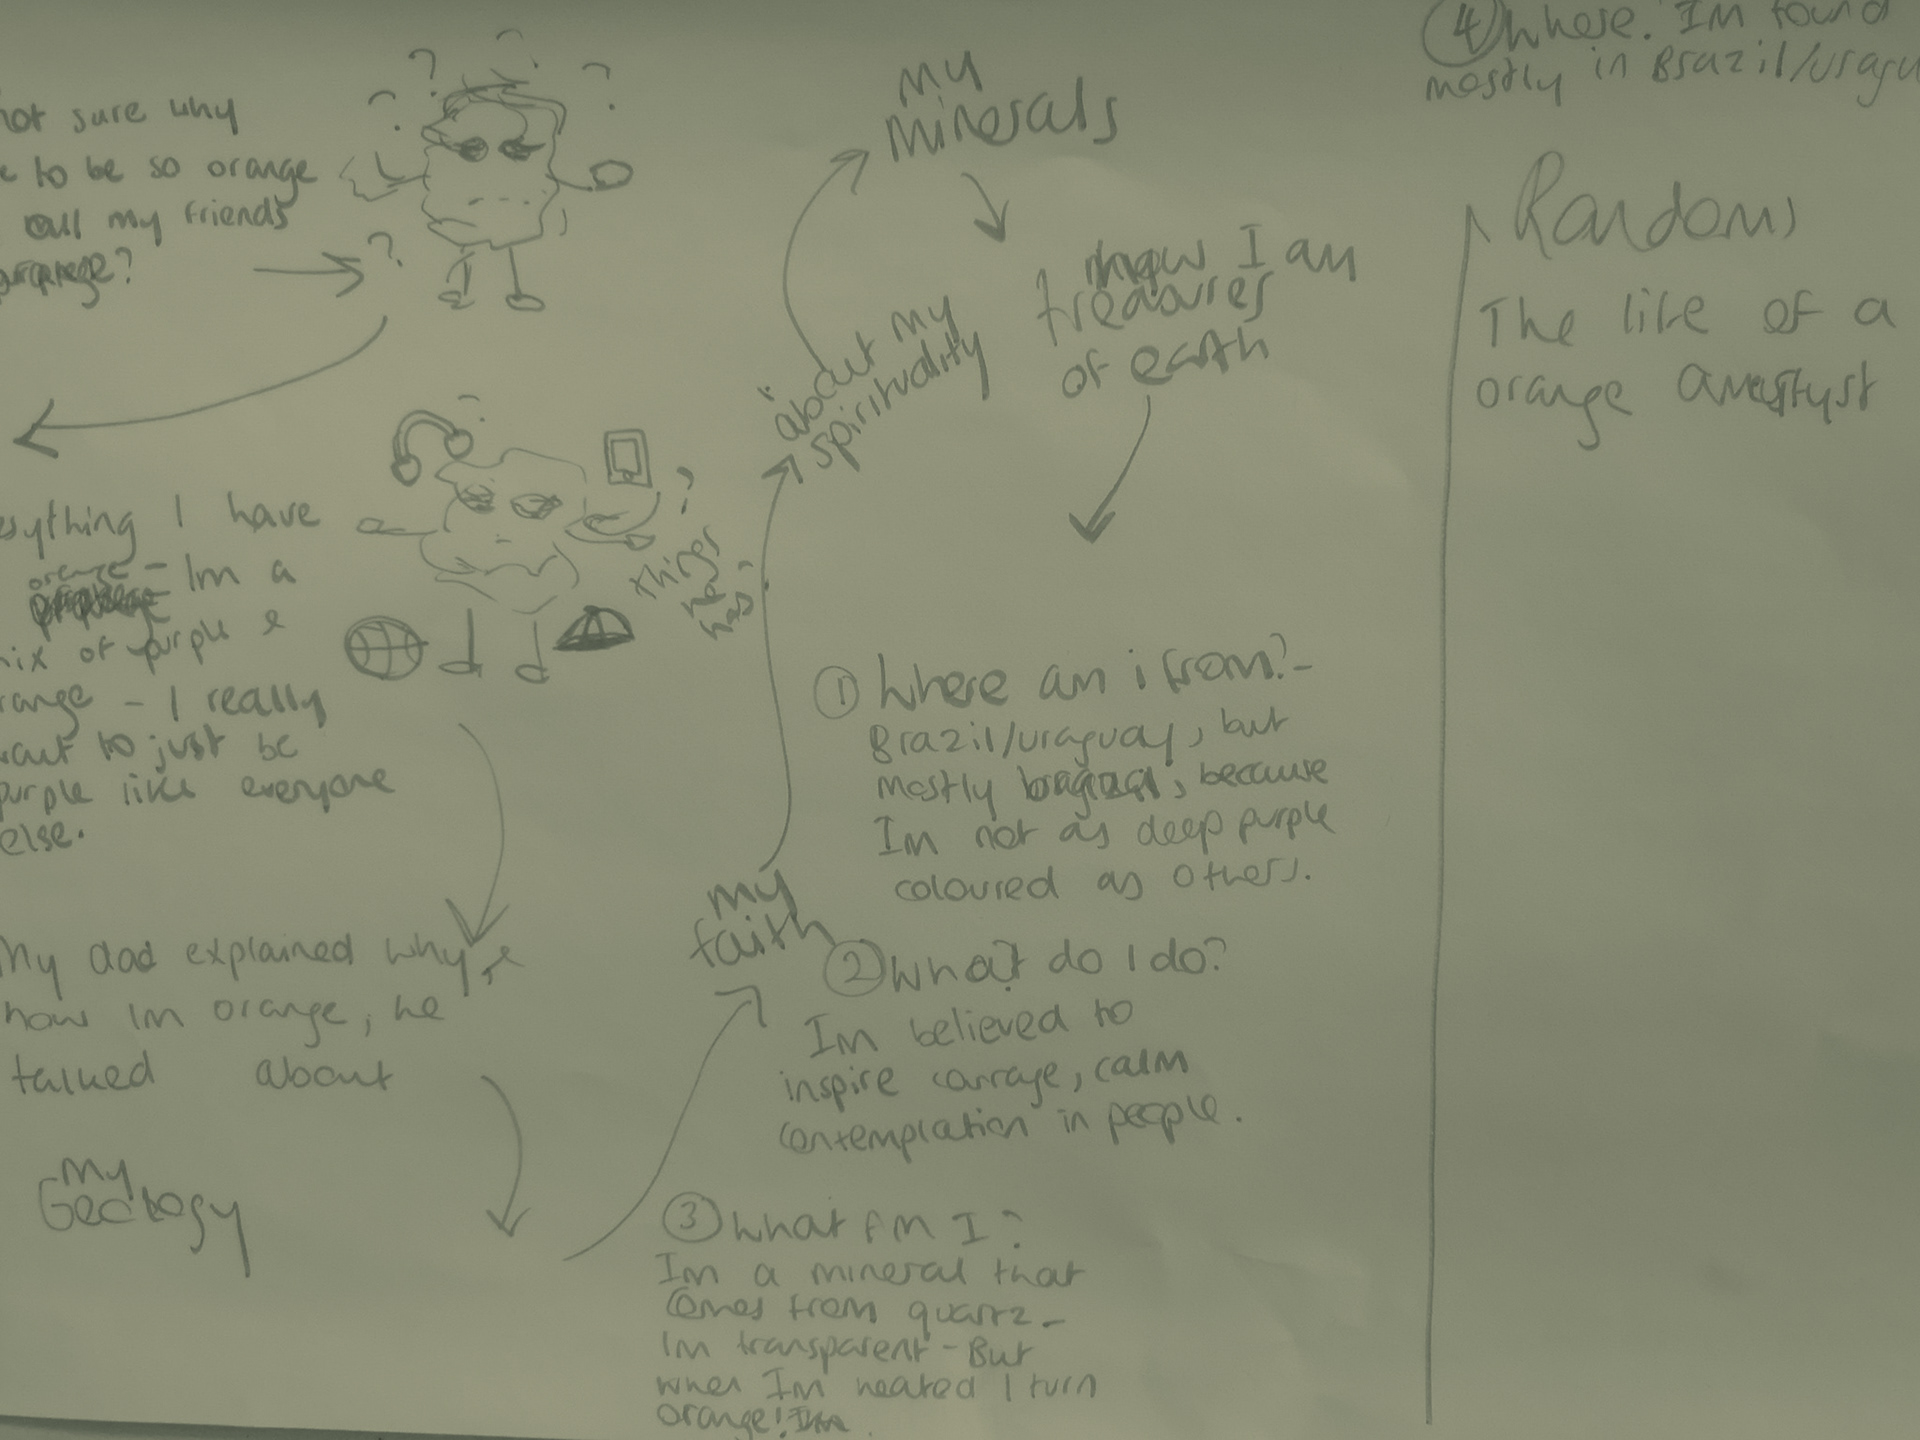 not sure why
to be so orange
all my friends
everything I have
orange - Im a
mix of purple &
orange - I really
want to just be
purple like everyone
else.
My dad explained why &
how im orange, he
talked about
my
Geology
my
faith
"about my
spirituality
my
minerals
how I am
treasures
of earth
things
he
has?
① Where am i from? -
Brazil/uraguay, but
mostly because
Im not as deep purple
coloured as others.
② What do I do?
Im believed to
inspire courage, calm
contemplation in people.
③ What Am I?
Im a mineral that
comes from quartz -
Im transparent - But
when Im heated I turn
orange!
④ Where. Im found
mostly in Brazil/uragu
Random
The life of a
orange